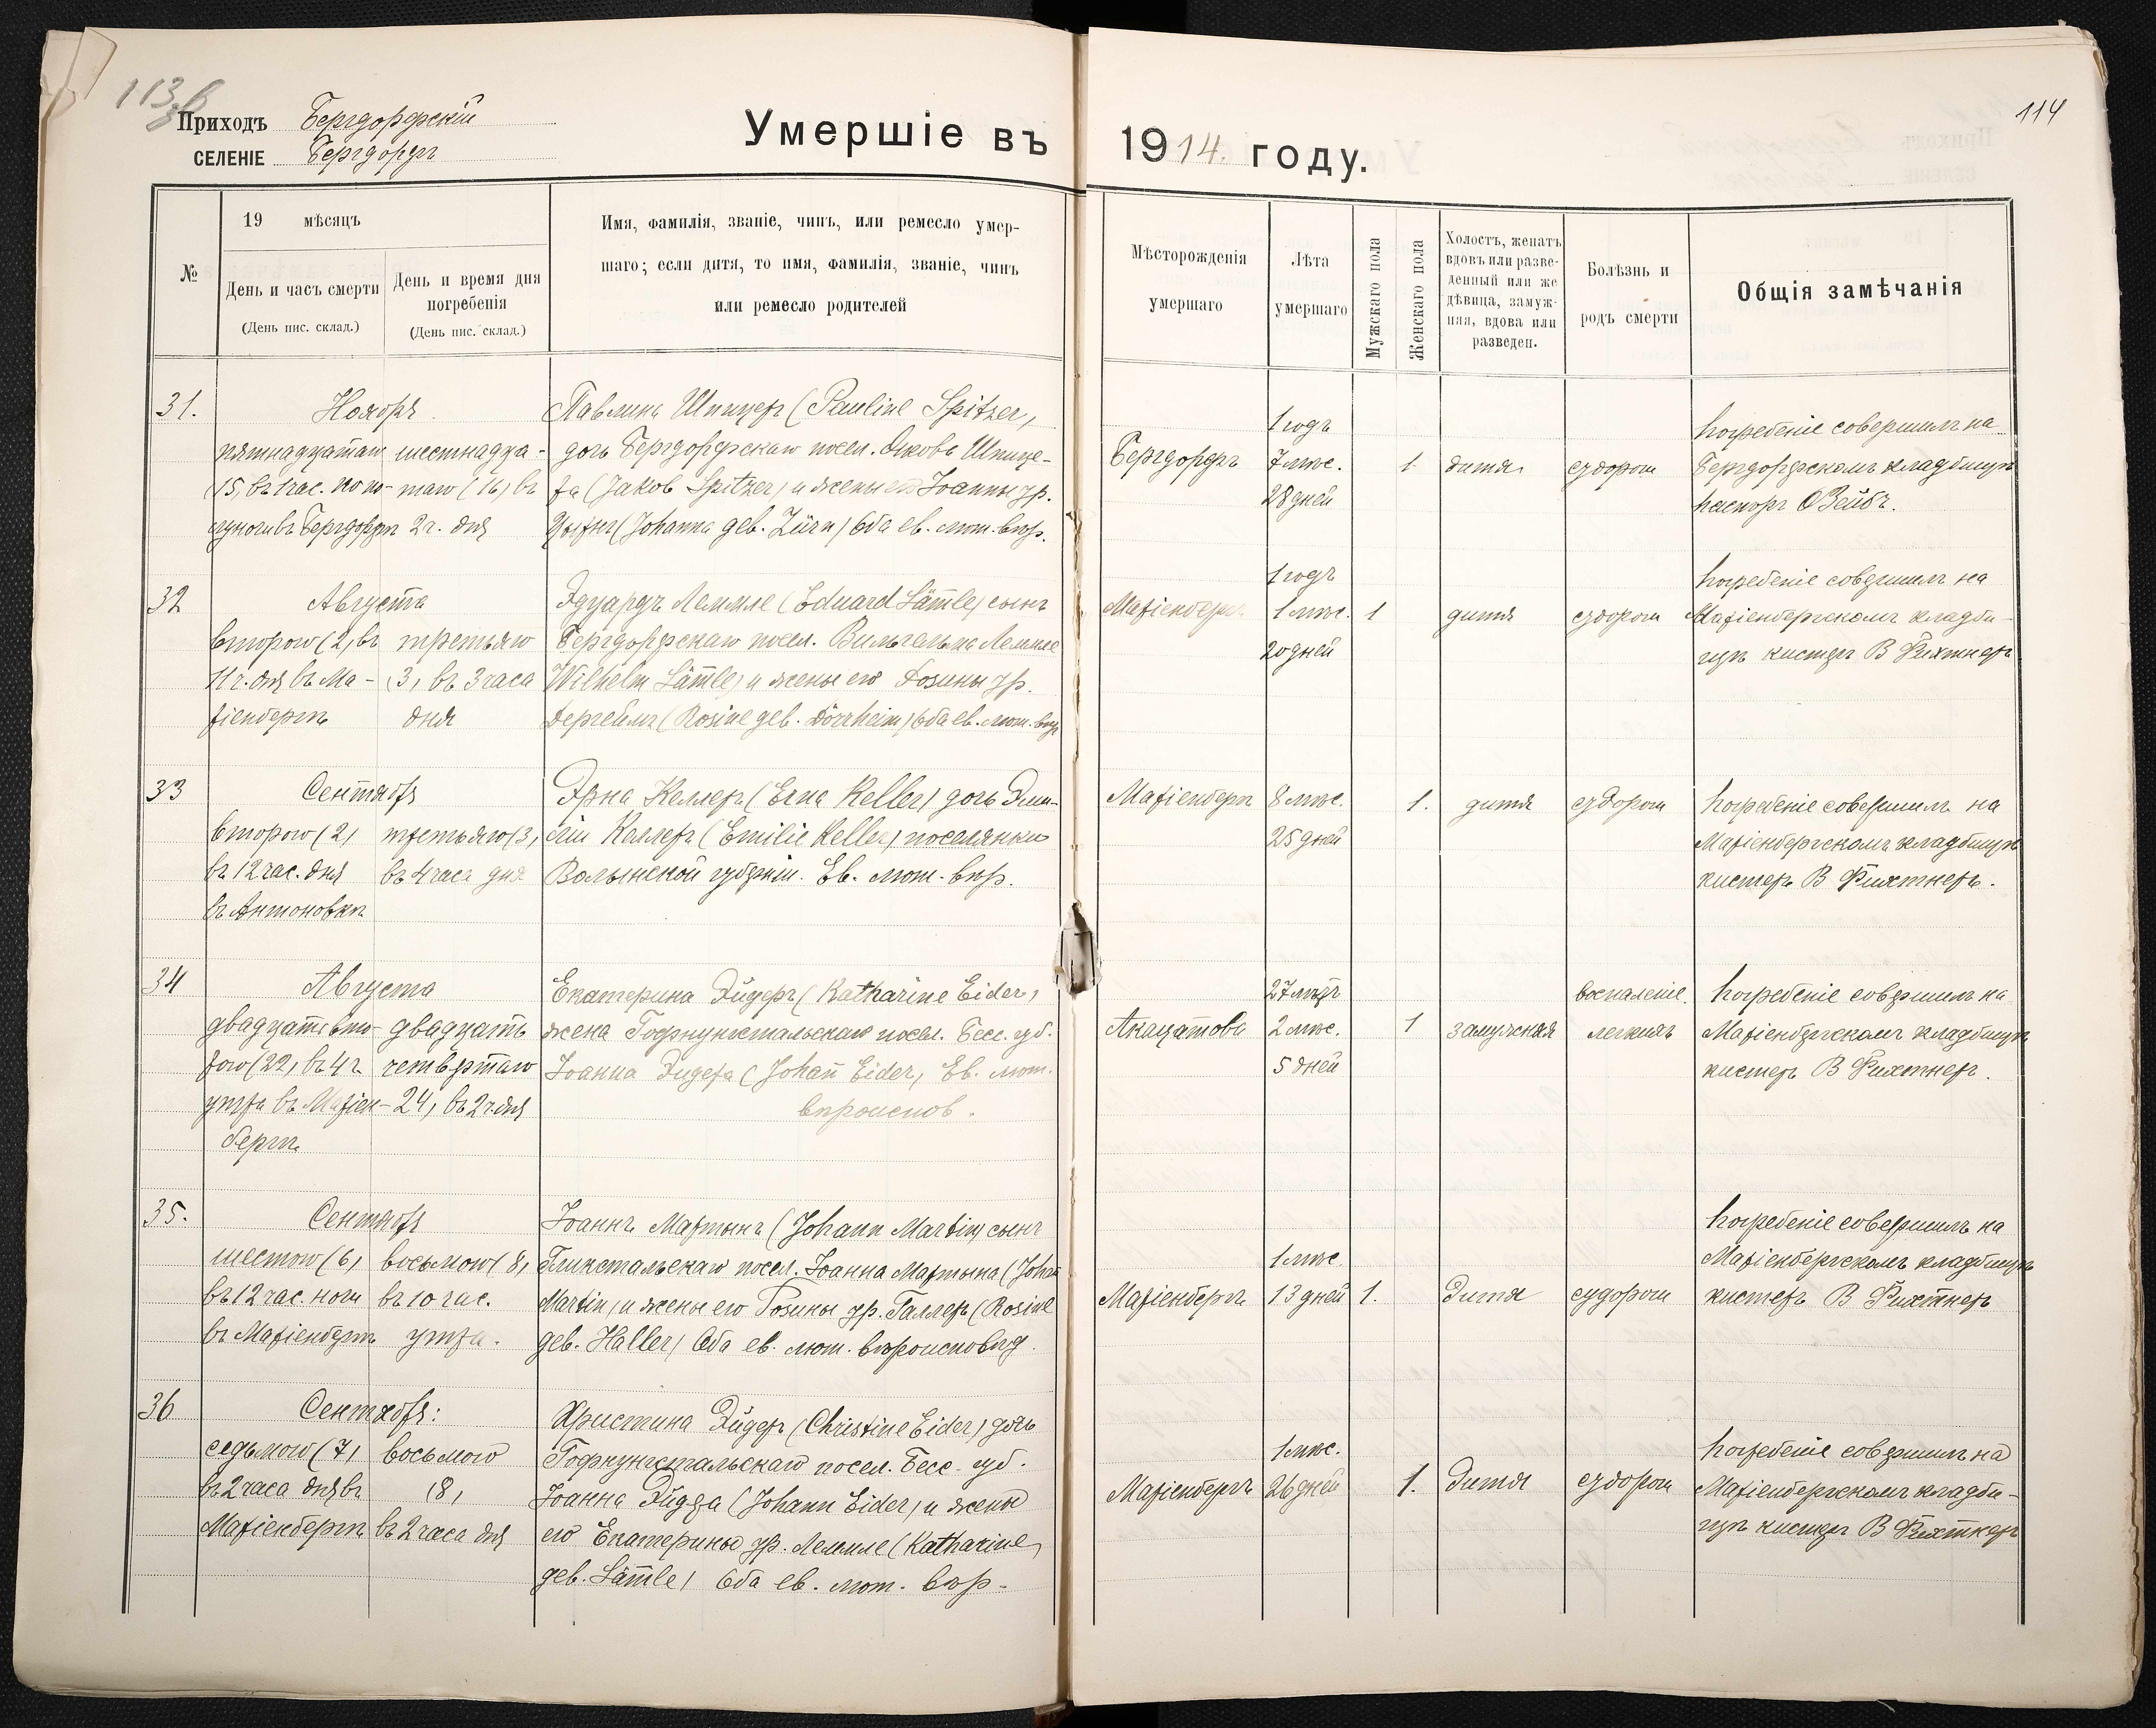 113 б
Приходъ Бергдорфскій
селеніе Бергдорфъ
Умершіе въ 1914 году.
114
№
19 мѣсяцъ
День и часъ смерти
(День пис. склад.)
День и время дня
погребенія
(День пис. склад.)
Имя, фамилія, званіе, чинъ, или ремесло умер-
шаго; если дитя, то имя, фамилія, званіе, чинъ
или ремесло родителей
Мѣсторожденія
умершаго
Лѣта
умершаго
Мужскаго пола
Женскаго пола
Холостъ, женатъ
вдовъ или разве-
денный или же
дѣвица, замуж-
няя, вдова или
разведен.
Болѣзнь и
родъ смерти
Общія замѣчанія
31.
Ноября
пятнадцатаго
(15) въ 1 час. по по-
луночи въ Бергдорфѣ
шестнадца-
таго (16) въ
2 ч. дня
Павлина Шпицеръ (Pauline Spitzer)
дочь Бергдорфскаго посел. Якова Шпице-
ра (Jakob Spitzer) и жены его Іоанны ур.
Цюрнъ (Johanna geb. Zürn) Оба ев. лют. вѣр.
Бергдорфъ
1 годъ
7 мѣс.
28 дней
1
дитя
судороги
Погребеніе совершилъ на
Бергдорфскомъ кладбищѣ
пасторъ О Зейбъ.
32
Августа
второго (2) въ
11 ч. дня въ Ма-
ріенбергѣ
третьяго
(3) въ 3 часа
дня
Эдуардъ Леммле (Eduard Läm̅le) сынъ
Бергдорфскаго посел. Вильгельма Леммле
Wilhelm Läm̅le) и жены его Розины ур.
Дергеймъ (Rosine geb. Dörrheim) Оба ев. лют. вѣр
Маріенбергъ
1 годъ
1 мѣс.
20 дней
1
дитя
судороги
Погребеніе совершилъ на
Маріенбергскомъ кладби-
щѣ кистеръ В Фихтнеръ
33
Сентября
второго (2)
въ 12 час. дня
въ Антоновкѣ
третьяго (3)
въ 4 часа дня
Эрна Келлеръ (Erna Keller) дочь Эми-
ліи Келлеръ (Emilie Keller) поселянки
Волынской губерніи. Ев. лют. вѣр.
Маріенбергъ
8 мѣс.
25 дней
1.
дитя
судороги
Погребеніе совершилъ на
Маріенбергскомъ кладбищѣ
кистеръ В Фихтнеръ.
34
Августа
двадцать вто-
рого (22) въ 4 ч
утра въ Маріен-
бергѣ
двадцать
четвертаго
24) въ 2 ч. дня
Екатерина Эйдеръ (Katharine Eider)
жена Гофнунгстальскаго посел. Бесс. губ.
Іоанна Эйдера (Johan̅ Eider) Ев. лют.
вѣроиспов.
27 лѣтъ
2 мѣс.
5 дней
1
замужняя
воспаленіе
легкихъ
Погребеніе совершилъ на
Маріенбергскомъ кладбищѣ
кистеръ В Фихтнеръ.
35.
Сентября
шестого (6)
въ 12 час. ночи
въ Маріенбергѣ
восьмого (8)
въ 10 час.
утра.
Іоаннъ Мартынъ (Johann Martin) сынъ
Гликстальскаго посел. Іоанна Мартына (Johan̅
Martin) и жены его Розины ур. Галлеръ (Rosine
geb. Haller) Оба ев. лют. вѣроисповѣд.
Маріенбергъ
1 мѣс.
13 дней
1.
Дитя
судороги
Погребеніе совершилъ на
Маріенбергскомъ кладбищѣ
кистеръ В Фихтнеръ
36
Сентября:
седьмого (7)
въ 2 часа дня въ
Маріенбергѣ
восьмого
(8)
въ 2 часа дня
Христина Эйдеръ (Christine Eider) дочь
Гофнунгстальскаго посел. Бесс. губ.
Іоанна Эйдера (Johann Eider) и жены
его Екатерины ур. Леммле (Katharine
geb. Läm̅le) Оба ев. лют. вѣр.
Маріенбергъ
1 мѣс.
26 дней
1.
Дитя
судороги
Погребеніе совершилъ на
Маріенбергскомъ кладби-
щѣ кистеръ В Фихтнеръ